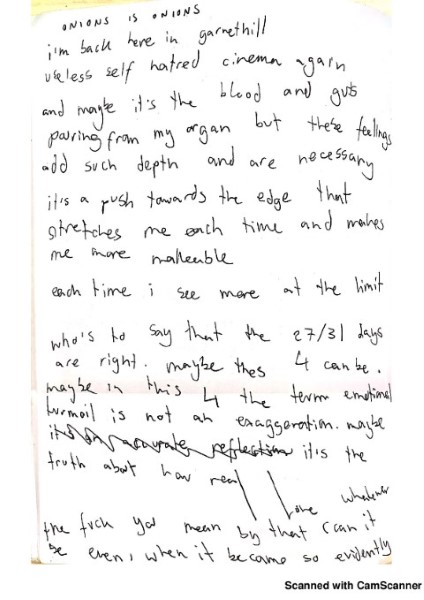 ONIONS IS ONIONS
i'm back here in garnethill
useless self hatred cinema again
and maybe it's the blood and guts
pouring from my organ but these feelings
add such depth and are necessary
it's a push towards the edge that
stretches me each time and makes
me more malleable
each time i see more at the limit
who's to say that the 27/31 days
are right. maybe thes 4 can be.
maybe in this 4 the term emotional
turmoil is not an exaggeration. maybe
it's an accurate reflection it's the
truth about how real love whatever
the fuck you mean by that (can it
be even, when it became so evidently
Scanned with CamScanner